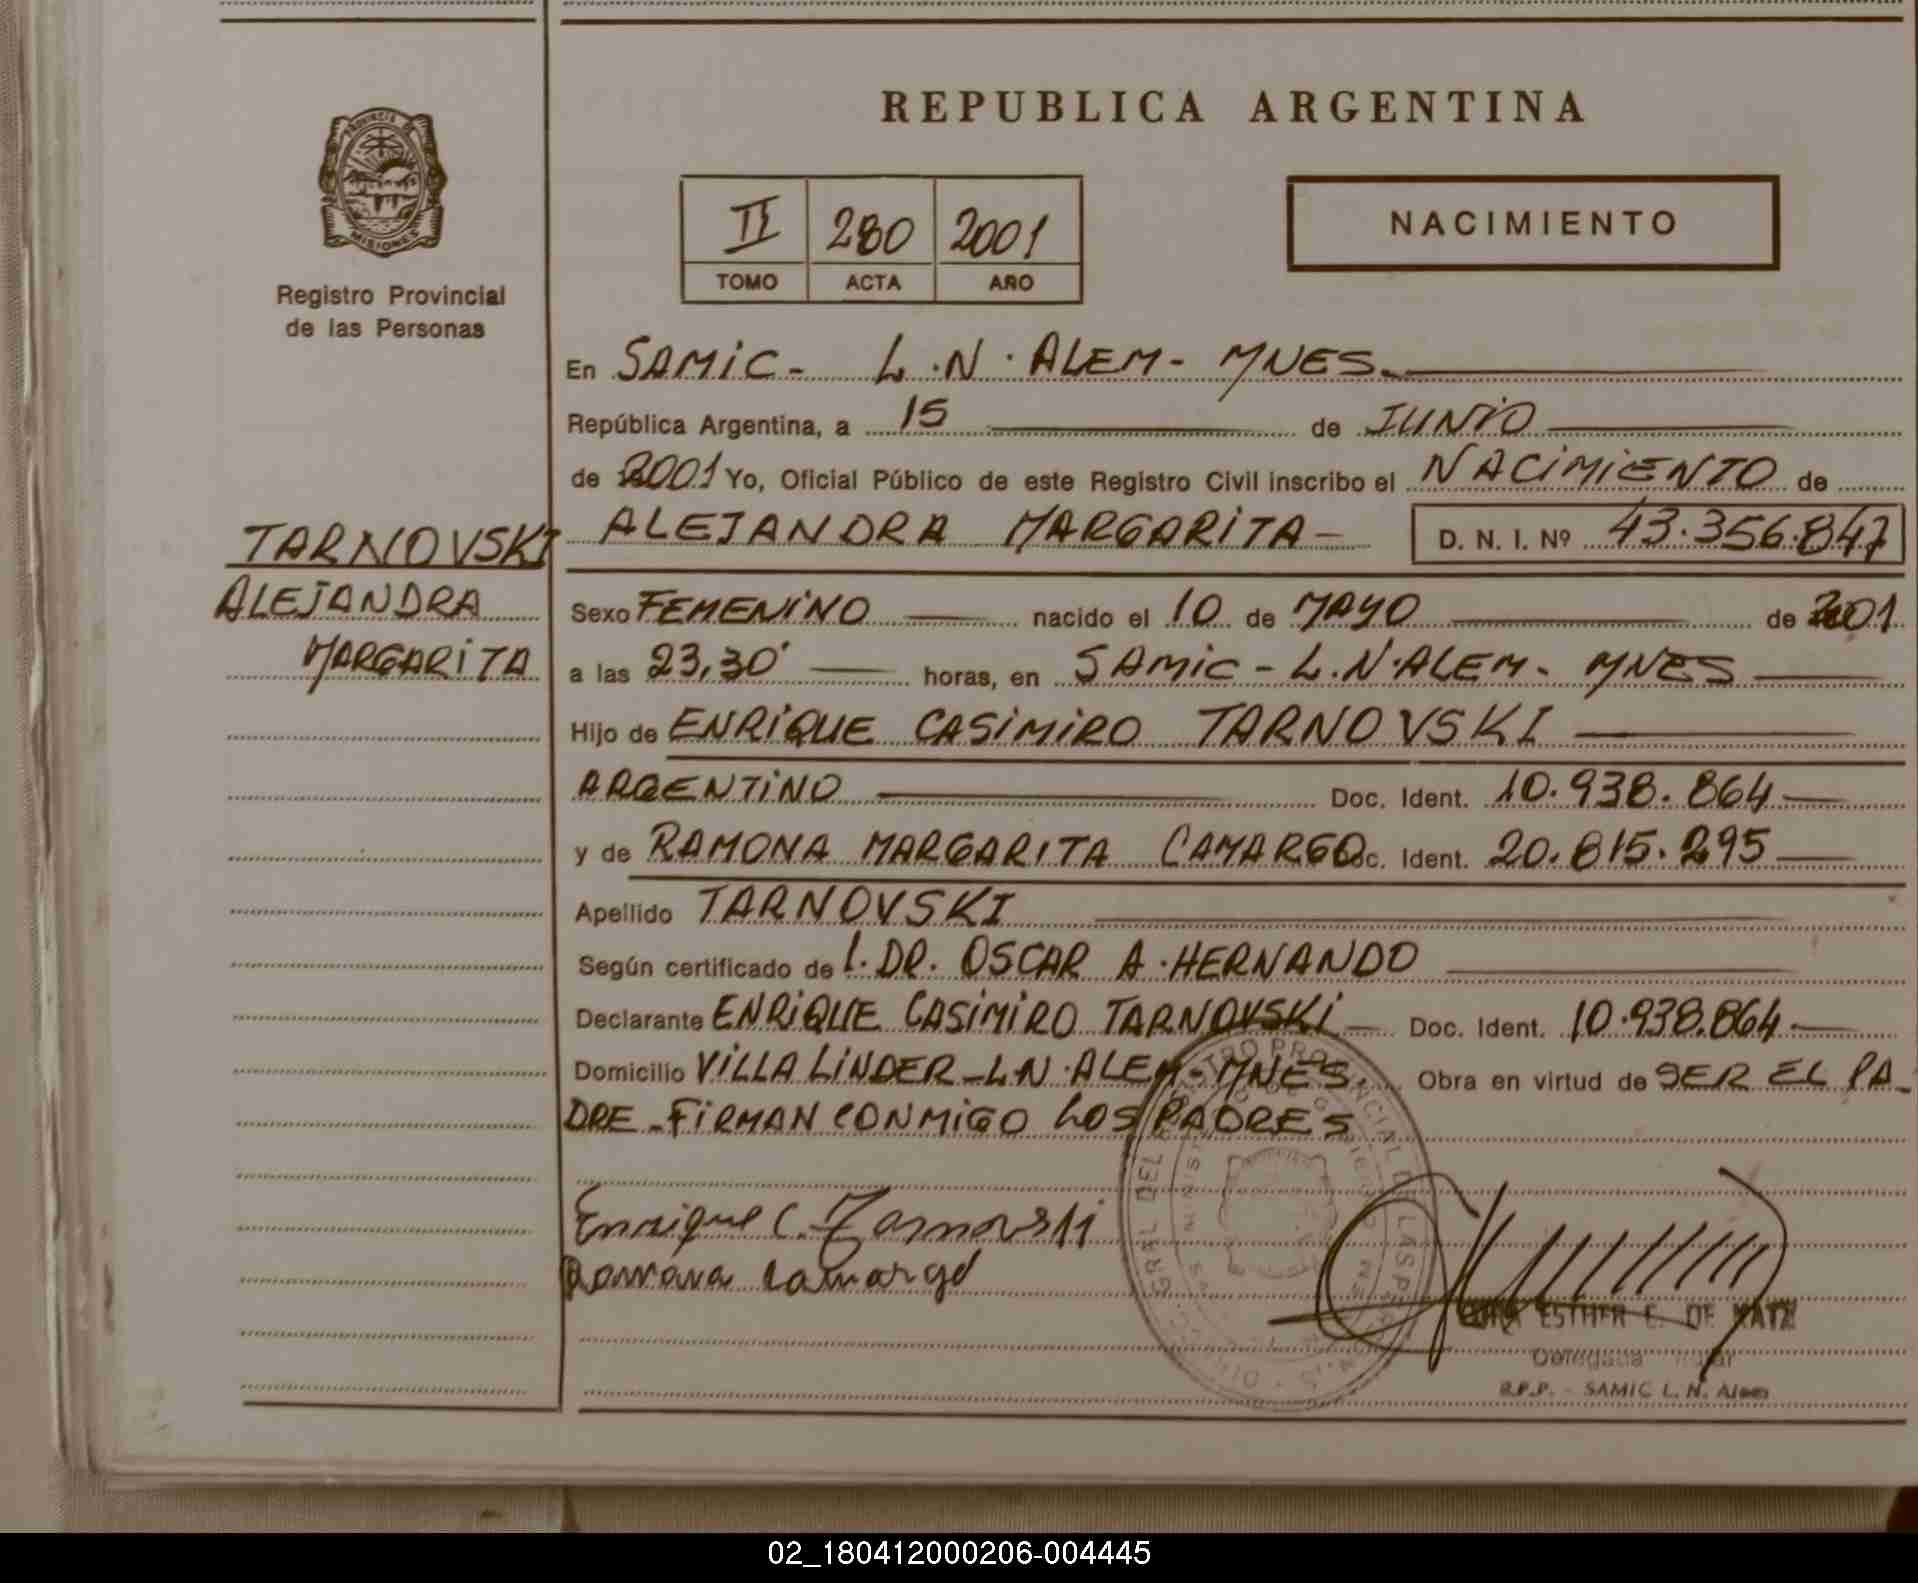 REPUBLICA ARGENTINA
PROVINCIA DE
MISIONES
Registro Provincial
de las Personas
II 280 2001
TOMO ACTA AÑO
NACIMIENTO
En SAMIC - L.N. ALEM - MNES.
República Argentina, a 15 de JUNIO
de 2001 Yo, Oficial Público de este Registro Civil inscribo el NACIMIENTO de
ALEJANDRA MARGARITA - D. N. I. Nº 43.356.847
TARNOVSKI
ALEJANDRA
MARGARITA
Sexo FEMENINO nacido el 10 de MAYO de 2001
a las 23,30' horas, en SAMIC - L.N. ALEM - MNES
Hijo de ENRIQUE CASIMIRO TARNOVSKI
ARGENTINO Doc. Ident. 10.938.864
y de RAMONA MARGARITA CAMARGO Doc. Ident. 20.815.295
Apellido TARNOVSKI
Según certificado de l. DR. OSCAR A. HERNANDO
Declarante ENRIQUE CASIMIRO TARNOVSKI - Doc. Ident. 10.938.864
Domicilio VILLA LINDER - L.N. ALEM - MNES. Obra en virtud de SER EL PA-
DRE - FIRMAN CONMIGO LOS PADRES
Enrique C. Tarnovski
Ramona Camargo
ESTHER E. DE
Delegada
R.P.P. - SAMIC L. N. Alem
02_180412000206-004445